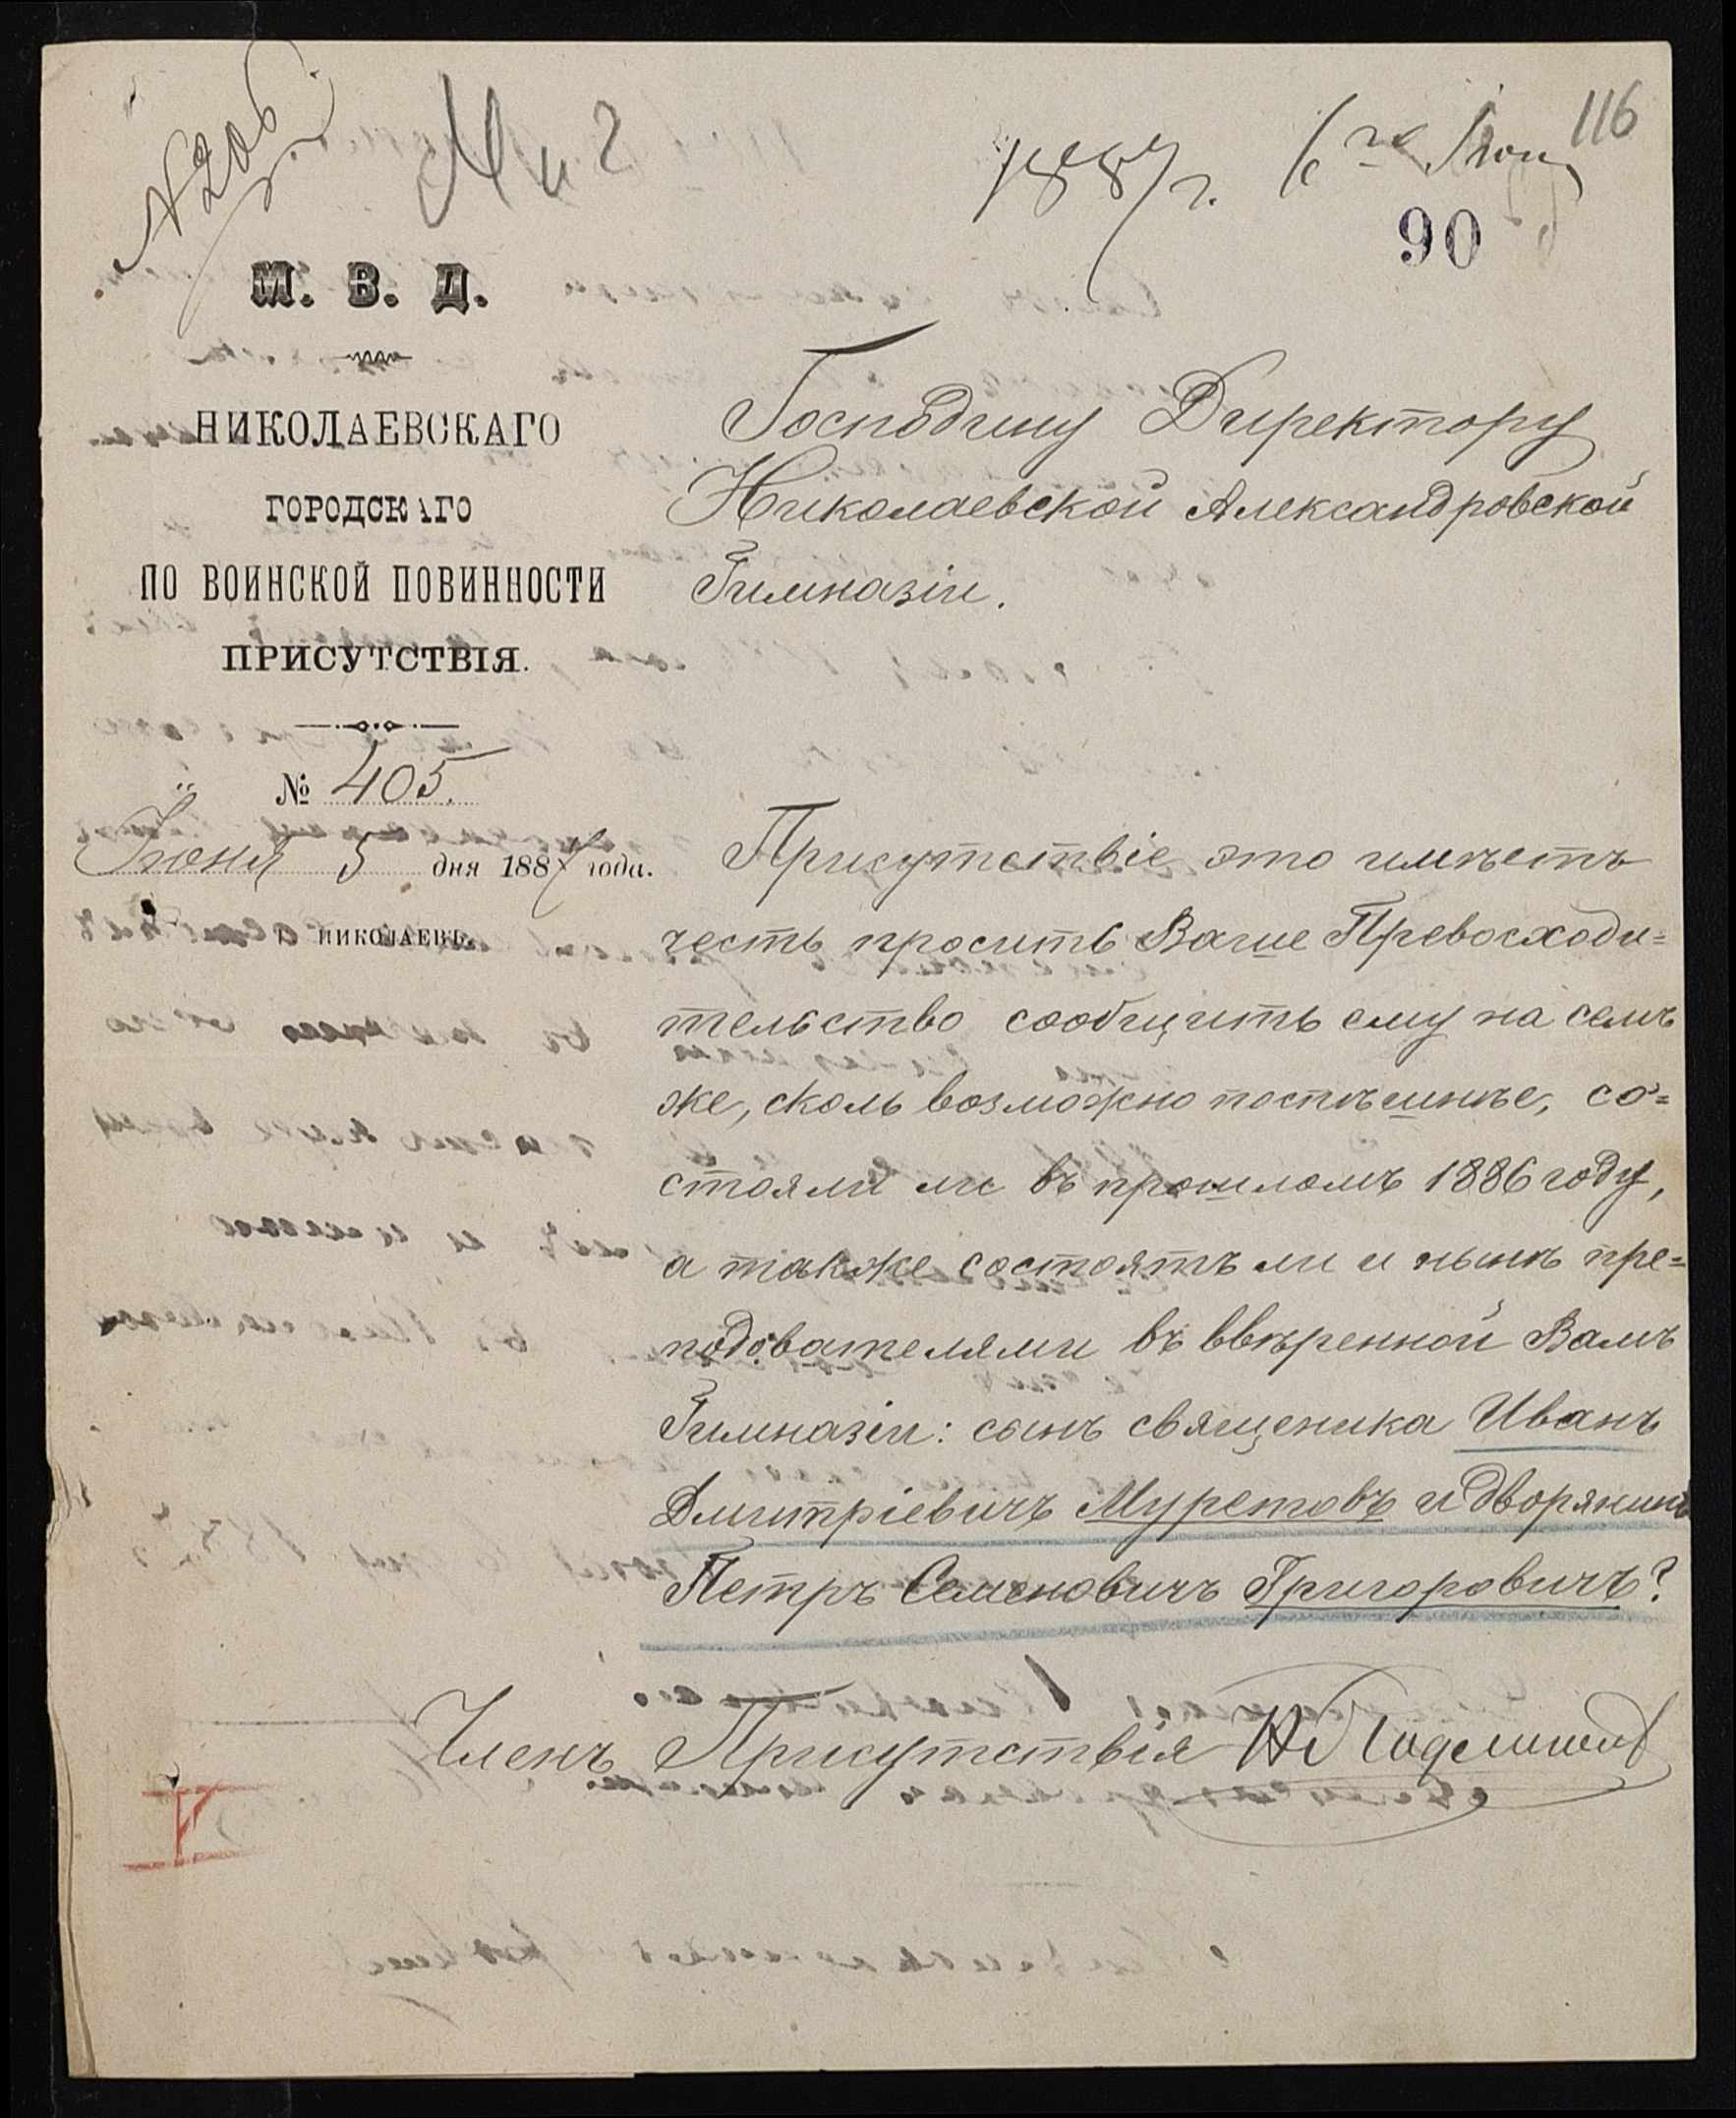 № 206
1887 г. 6го Июня
116
90
М. В. Д.
НИКОЛАЕВСКАГО
ГОРОДСКАГО
ПО ВОИНСКОЙ ПОВИННОСТИ
ПРИСУТСТВІЯ.
№ 405.
Іюня 5 дня 1887 года.
Г. НИКОЛАЕВЪ.
Господину Директору
Николаевской Александровской
Гимназіи.
Присутствіе это имѣетъ
честь просить Ваше Превосходи=
тельство сообщить ему на семъ
же, сколь возможно поспѣшнѣе, со=
стояли ли въ прошломъ 1886 году,
а также состоятъ ли и нынѣ пре=
подователями въ ввѣренной Вамъ
Гимназіи: сынъ священика Иванъ
Дмитріевичъ Муретовъ и дворянинъ
Петръ Семеновичъ Григоровичъ?
Членъ Присутствія